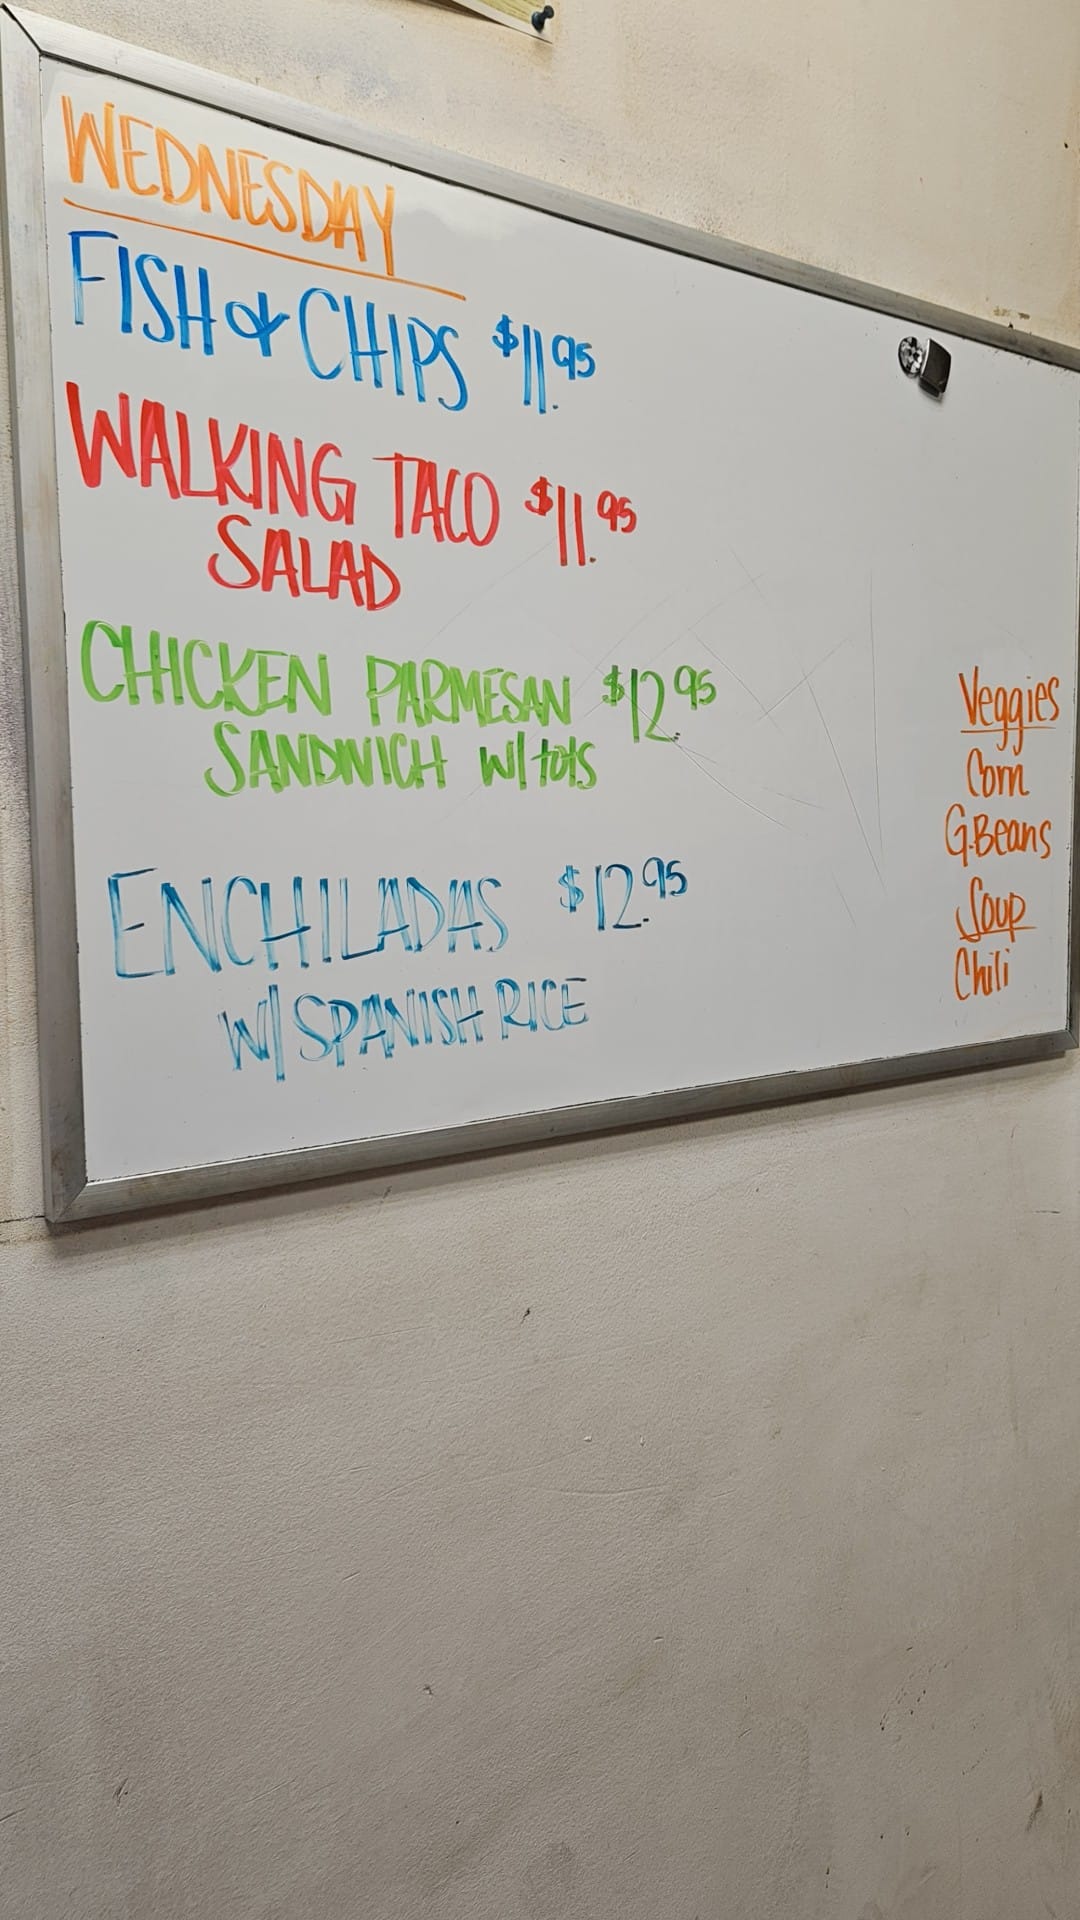 WEDNESDAY
FISH & CHIPS $11.95
WALKING TACO $11.95
SALAD
CHICKEN PARMESAN $12.95
SANDWICH w/ tots
ENCHILADAS $12.95
W/ SPANISH RICE
Veggies
Corn
G.Beans
Soup
Chili